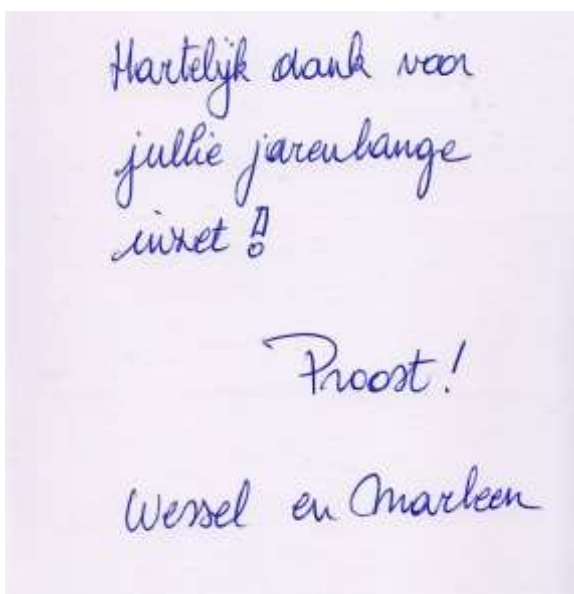 Hartelijk dank voor
jullie jarenlange
inzet!
Proost!
Wessel en Marleen